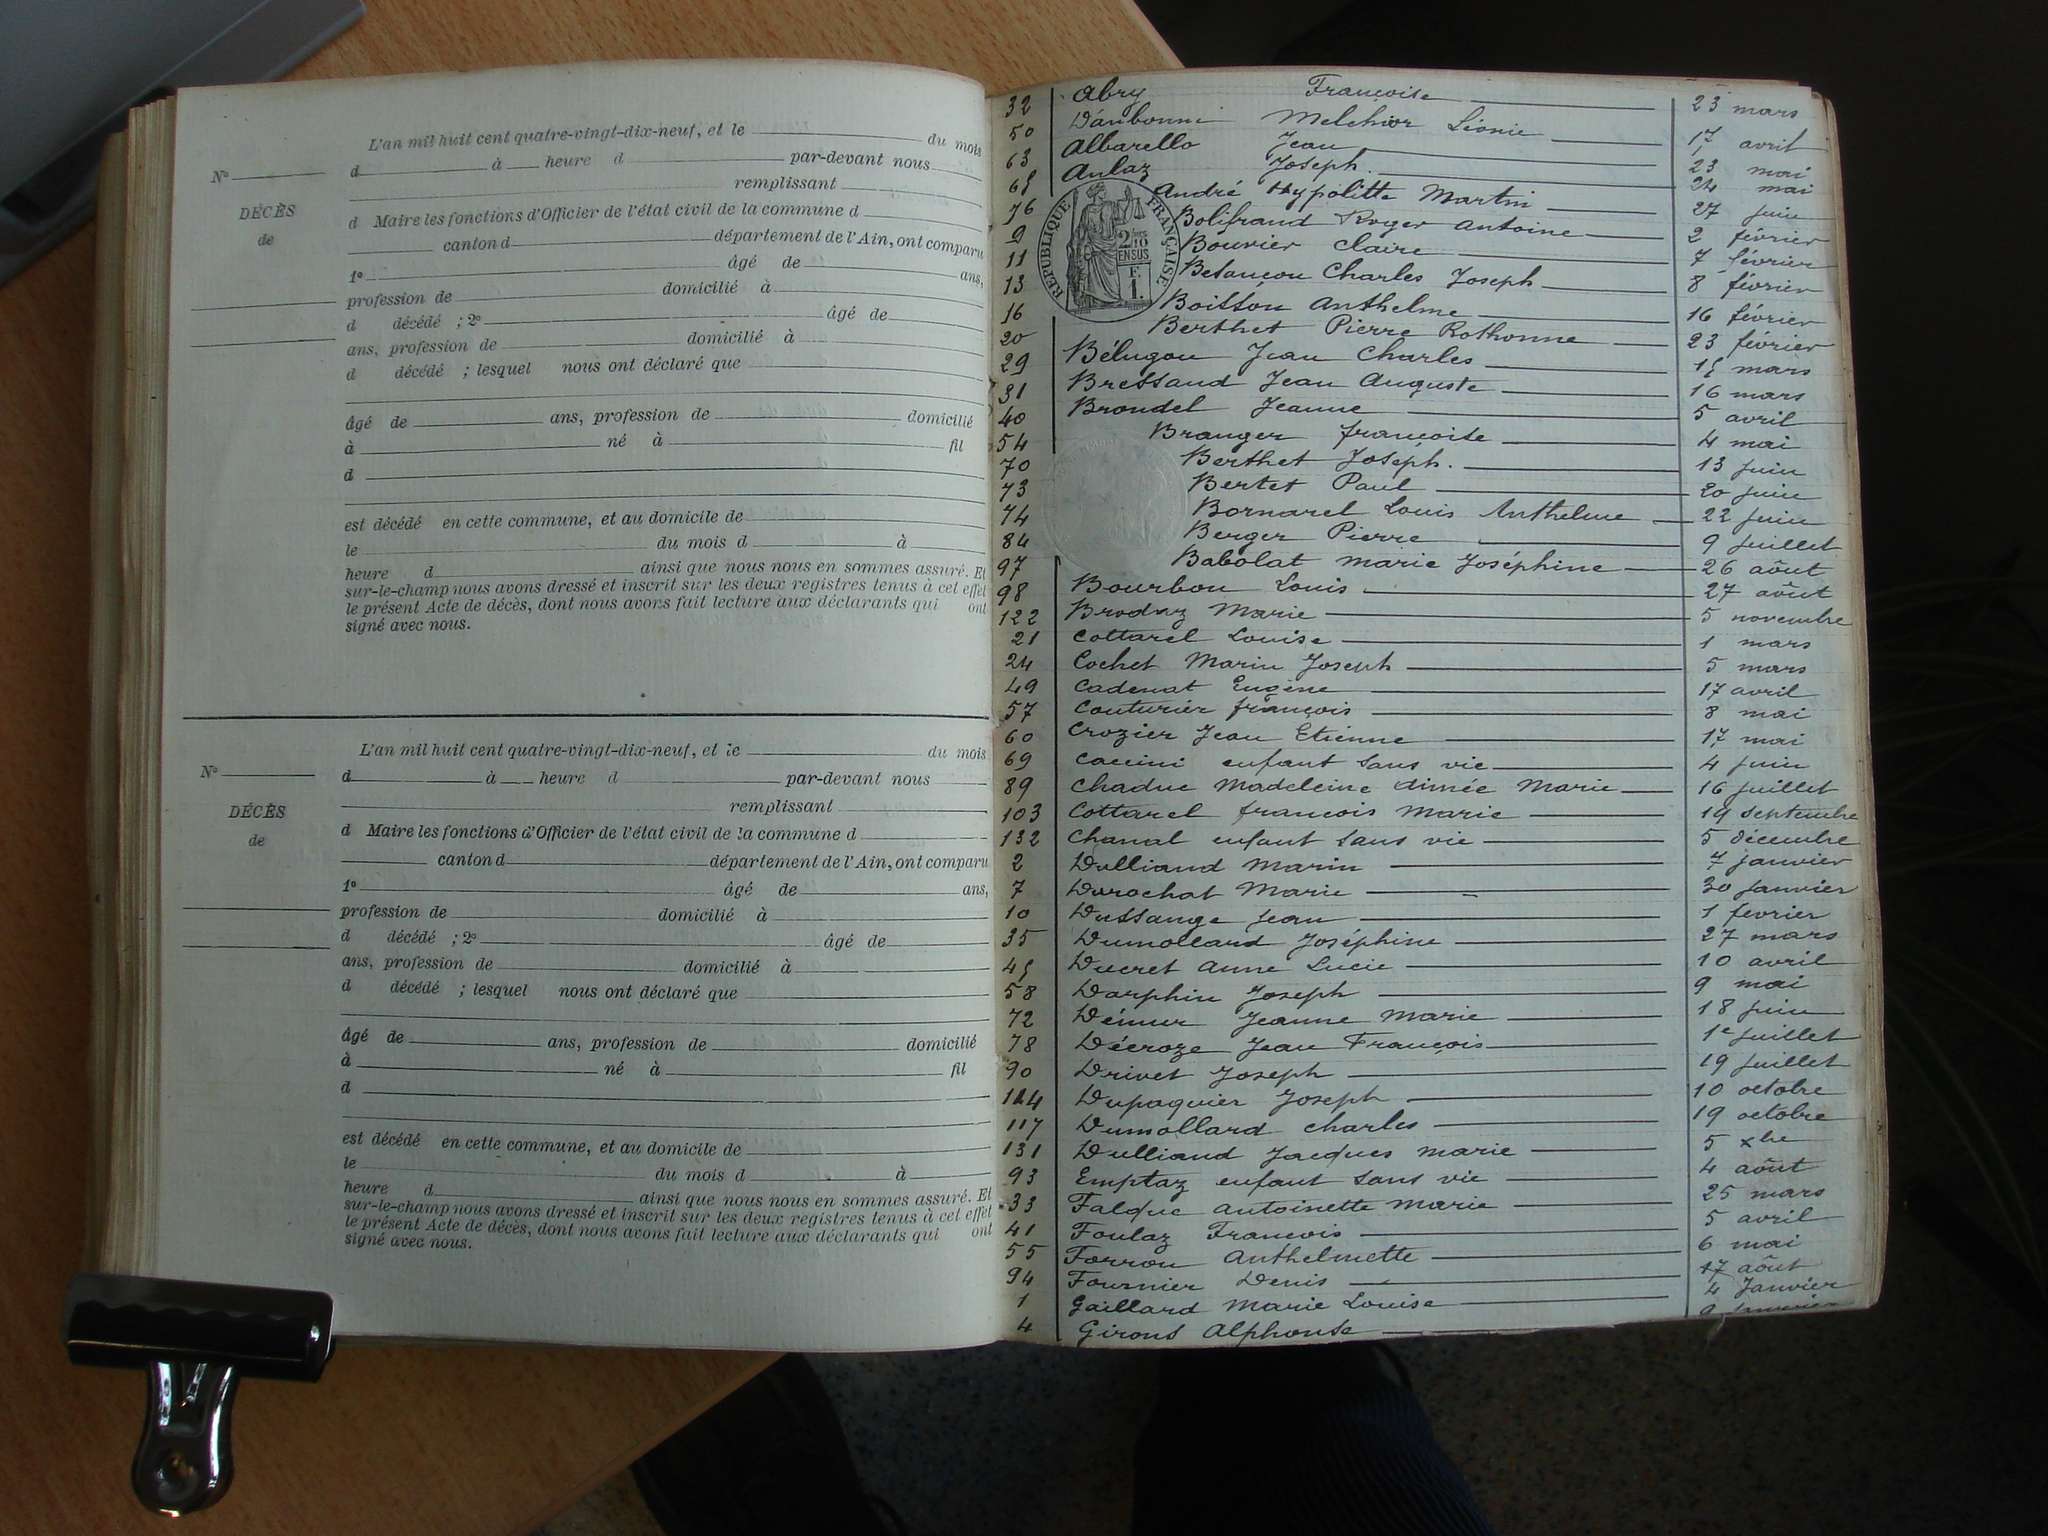 L'an mil huit cent quatre-vingt-dix-neuf, et le du mois
No d à heure d par-devant nous
remplissant
DÉCÈS
d Maire les fonctions d'Officier de l'état civil de la commune d
de
canton d département de l'Ain, ont comparu
1o âgé de ans,
profession de domicilié à
d décédé ; 2o âgé de
ans, profession de domicilié à
d décédé ; lesquel nous ont déclaré que
âgé de ans, profession de domicilié
à né à fil
d
est décédé en cette commune, et au domicile de
le du mois d à
heure d ainsi que nous nous en sommes assuré. Et
sur-le-champ nous avons dressé et inscrit sur les deux registres tenus à cet effet
le présent Acte de décès, dont nous avons fait lecture aux déclarants qui ont
signé avec nous.
L'an mil huit cent quatre-vingt-dix-neuf, et le du mois
No d à heure d par-devant nous
remplissant
DÉCÈS
d Maire les fonctions d'Officier de l'état civil de la commune d
de
canton d département de l'Ain, ont comparu
1o âgé de ans,
profession de domicilié à
d décédé ; 2o âgé de
ans, profession de domicilié à
d décédé ; lesquel nous ont déclaré que
âgé de ans, profession de domicilié
à né à fil
d
est décédé en cette commune, et au domicile de
le du mois d à
heure d ainsi que nous nous en sommes assuré. Et
sur-le-champ nous avons dressé et inscrit sur les deux registres tenus à cet effet
le présent Acte de décès, dont nous avons fait lecture aux déclarants qui ont
signé avec nous.
32 Abry Françoise 23 mars
50 Melchior Léonie 17 avril
63 Albarello Jean 23 mai
65 Aulaz Joseph 24 mai
76 André Hypolitte Martin 27 juin
9 Bolifrand Roger Antoine 2 février
11 Bouvier Claire 7 février
13 Besançon Charles Joseph 8 février
16 Boisson Anthelme 16 février
20 Berthet Pierre Rothonne 23 février
29 Bélugou Jean Charles 15 mars
31 Bressaud Jean Auguste 16 mars
40 Brondel Jeanne 5 avril
54 Branger françoise 4 mai
70 Berthet Joseph. 13 juin
73 Bertet Paul 20 juin
74 Bornarel Louis Anthelme 22 juin
84 Berger Pierre 9 juillet
97 Babolat marie Joséphine 26 août
98 Bourbon Louis 27 août
122 Brodaz Marie 5 novembre
21 Cottarel Louise 1 mars
24 Cochet Marin Joseph 5 mars
49 Cadenat Eugène 17 avril
57 Couturier françois 8 mai
60 Crozier Jean Etienne 17 mai
69 Caccini enfant sans vie 4 juin
89 Chaduc Madeleine Aimée Marie 16 juillet
103 Cottarel francois Marie 19 septembre
132 Chanal enfant sans vie 5 décembre
2 Dulliand Marin 7 janvier
7 Durochat Marie 30 janvier
10 Dussange Jean 1 fevrier
35 Dumollard Joséphine 27 mars
45 Ducret Anne Lucie 10 avril
58 Darphin Joseph 9 mai
72 Démur Jeanne Marie 18 juin
78 Décroze Jean François 1e juillet
90 Drivet Joseph 19 juillet
114 Dupaquier Joseph 10 octobre
117 Dumollard Charles 19 octobre
131 Dulliand Jacques marie 5 xbre
93 Emptaz enfant sans vie 4 août
33 Falque Antoinette Marie 25 mars
41 Foulaz Francois 5 avril
55 Forron Anthelmette 6 mai
94 Fournier Denis 17 août
1 Gaillard Marie Louise 4 Janvier
4 Girons Alphonse 9 janvier
RÉPUBLIQUE FRANÇAISE
2 10
EN SUS
F.
1.